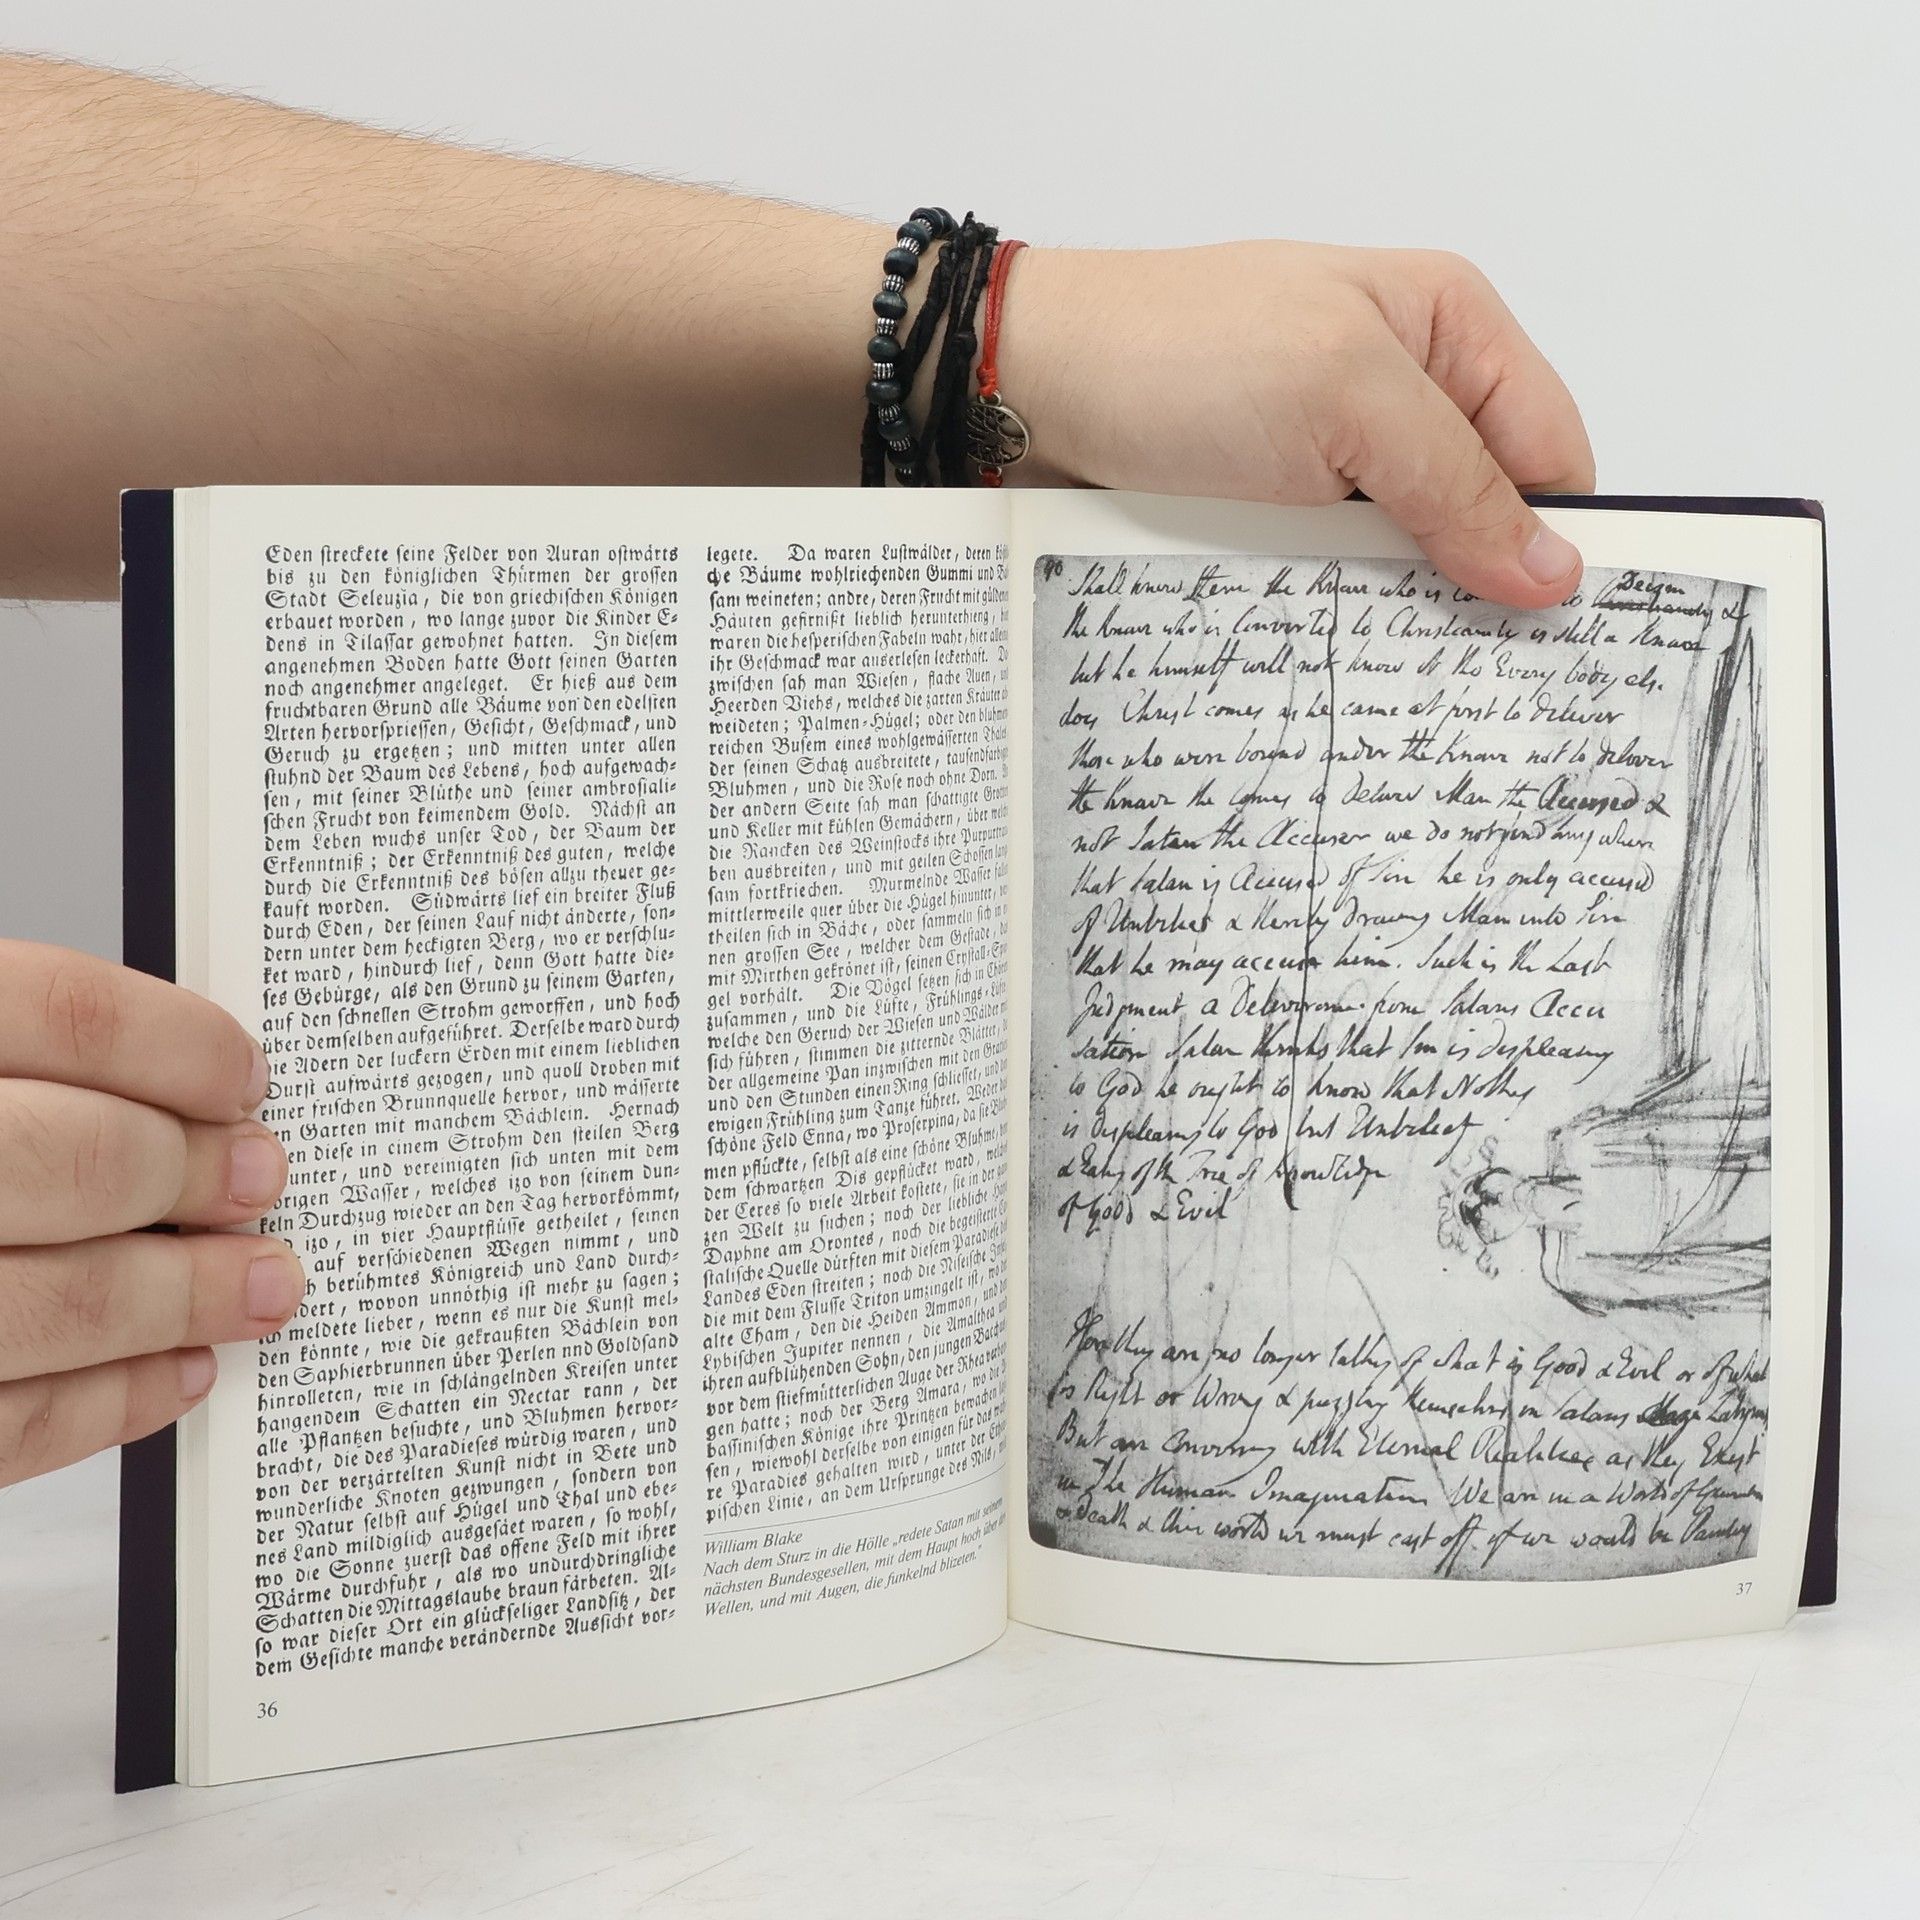 Eden streckete seine Felder von Auran ostwärts
bis zu den königlichen Thürmen der grossen
Stadt Seleuzia, die von griechischen Königen
erbauet worden, wo lange zuvor die Kinder E=
dens in Tilassar gewohnet hatten. In diesem
angenehmen Boden hatte Gott seinen Garten
noch angenehmer angeleget. Er hieß aus dem
fruchtbaren Grund alle Bäume von den edelsten
Arten hervorspriessen, Gesicht, Geschmack, und
Geruch zu ergetzen; und mitten unter allen
stuhnd der Baum des Lebens, hoch aufgewach=
sen, mit seiner Blüthe und seiner ambrosiali=
schen Frucht von keimendem Gold. Nächst an
dem Leben wuchs unser Tod, der Baum der
Erkenntniß; der Erkenntniß des guten, welche
durch die Erkenntniß des bösen allzu theuer ge=
kauft worden. Südwärts lief ein breiter Fluß
durch Eden, der seinen Lauf nicht änderte, son=
dern unter dem heckigten Berg, wo er verschlu=
ket ward, hindurch lief, denn Gott hatte die=
ses Gebürge, als den Grund zu seinem Garten,
auf den schnellen Strohm geworffen, und hoch
über demselben aufgeführet. Derselbe ward durch
die Adern der luckern Erden mit einem lieblichen
Durst aufwärts gezogen, und quoll droben mit
einer frischen Brunnquelle hervor, und wässerte
Garten mit manchem Bächlein. Hernach
diese in einem Strohm den steilen Berg
unter, und vereinigten sich unten mit dem
Wasser, welches izo von seinem dun=
keln Durchzug wieder an den Tag hervorkömmt,
izo, in vier Hauptflüsse getheilet, seinen
auf verschiedenen Wegen nimmt, und
berühmtes Königreich und Land durch=
wovon unnöthig ist mehr zu sagen;
ich meldete lieber, wenn es nur die Kunst mel=
den könnte, wie die gekraußten Bächlein von
den Saphierbrunnen über Perlen nnd Goldsand
hinrolleten, wie in schlängelnden Kreisen unter
hangendem Schatten ein Nectar rann, der
alle Pflantzen besuchte, und Bluhmen hervor=
bracht, die des Paradieses würdig waren, und
von der verzärtelten Kunst nicht in Bete und
wunderliche Knoten gezwungen, sondern von
der Natur selbst auf Hügel und Thal und ebe=
nes Land mildiglich ausgesäet waren, so wohl,
wo die Sonne zuerst das offene Feld mit ihrer
Wärme durchfuhr, als wo undurchdringliche
Schatten die Mittagslaube braun färbeten. Al=
so war dieser Ort ein glückseliger Landsitz, der
dem Gesichte manche verändernde Aussicht vor=
36
legete. Da waren Lustwälder, deren
che Bäume wohlriechenden Gummi und
sam weineten; andre, deren Frucht mit
Häuten gefirnißt lieblich herunterhieng,
waren die hesperischen Fabeln wahr, hier
ihr Geschmack war auserlesen leckerhaft.
zwischen sah man Wiesen, flache Auen,
Heerden Viehs, welches die zarten Kräuter
weideten; Palmen=Hügel; oder den
reichen Busem eines wohlgewässerten
der seinen Schatz ausbreitete,
Bluhmen, und die Rose noch ohne Dorn.
der andern Seite sah man schattigte
und Keller mit kühlen Gemächern, über
die Rancken des Weinstocks ihre
ben ausbreiten, und mit geilen Schossen
sam fortkriechen. Murmelnde Wasser
mittlerweile quer über die Hügel hinunter,
theilen sich in Bäche, oder sammeln sich in
nen grossen See, welcher dem Gestade,
mit Mirthen gekrönet ist, seinen
gel vorhält. Die Vögel setzen sich in
zusammen, und die Lüfte,
welche den Geruch der Wiesen und Wälder
sich führen, stimmen die zitternde Blätter,
der allgemeine Pan inzwischen mit den
und den Stunden einen Ring schliesset, und
ewigen Frühling zum Tanze führet. Weder
schöne Feld Enna, wo Proserpina, da sie
men pflückte, selbst als eine schöne Bluhme,
dem schwartzen Dis gepflücket ward,
der Ceres so viele Arbeit kostete, sie in der
zen Welt zu suchen; noch der liebliche
Daphne am Orontes, noch die begeisterte
stalische Quelle dürften mit diesem Paradiese
Landes Eden streiten; noch die Niseische
die mit dem Flusse Triton umzingelt ist, wo
alte Cham, den die Heiden Ammon, und
Lybischen Jupiter nennen, die Amalthea
ihren aufblühenden Sohn, den jungen
vor dem stiefmütterlichen Auge der Rhea
gen hatte; noch der Berg Amara, wo die
bassinischen Könige ihre Printzen bewachen
sen, wiewohl derselbe von einigen für das
re Paradies gehalten wird, unter der
pischen Linie, an dem Ursprunge des Nils,
William Blake
Nach dem Sturz in die Hölle „redete Satan mit seinem
nächsten Bundesgesellen, mit dem Haupt hoch über
Wellen, und mit Augen, die funkelnd blizeten."
90
Shall know them the Knave who is to Deism
the Knave who is Converted to Christianity is still a Knave
but he himself will not know it tho Every body els
does Christ comes as he came at first to deliver
those who were bound under the Knave not to deliver
the Knave He Comes to Deliver Man the Accused &
not Satan the Accuser we do not find any where
that Satan is Accused of Sin he is only accused
of Unbelief & thereby drawing Man into Sin
that he may accuse him. Such is the Last
Judgment a Deliverance from Satans Accu
sation Satan thinks that Sin is displeasing
to God he ought to know that Nothing
is displeasing to God but Unbelief
& Eating of the Tree of Knowledge
of Good & Evil
Here they are no longer talking of what is Good & Evil or of what
is Right or Wrong & puzzling themselves in Satans Labyrinth
But are Conversing with Eternal Realities as they Exist
in The Human Imagination We are in a World of Generation
& death & this world we must cast off if we would be Painters
37